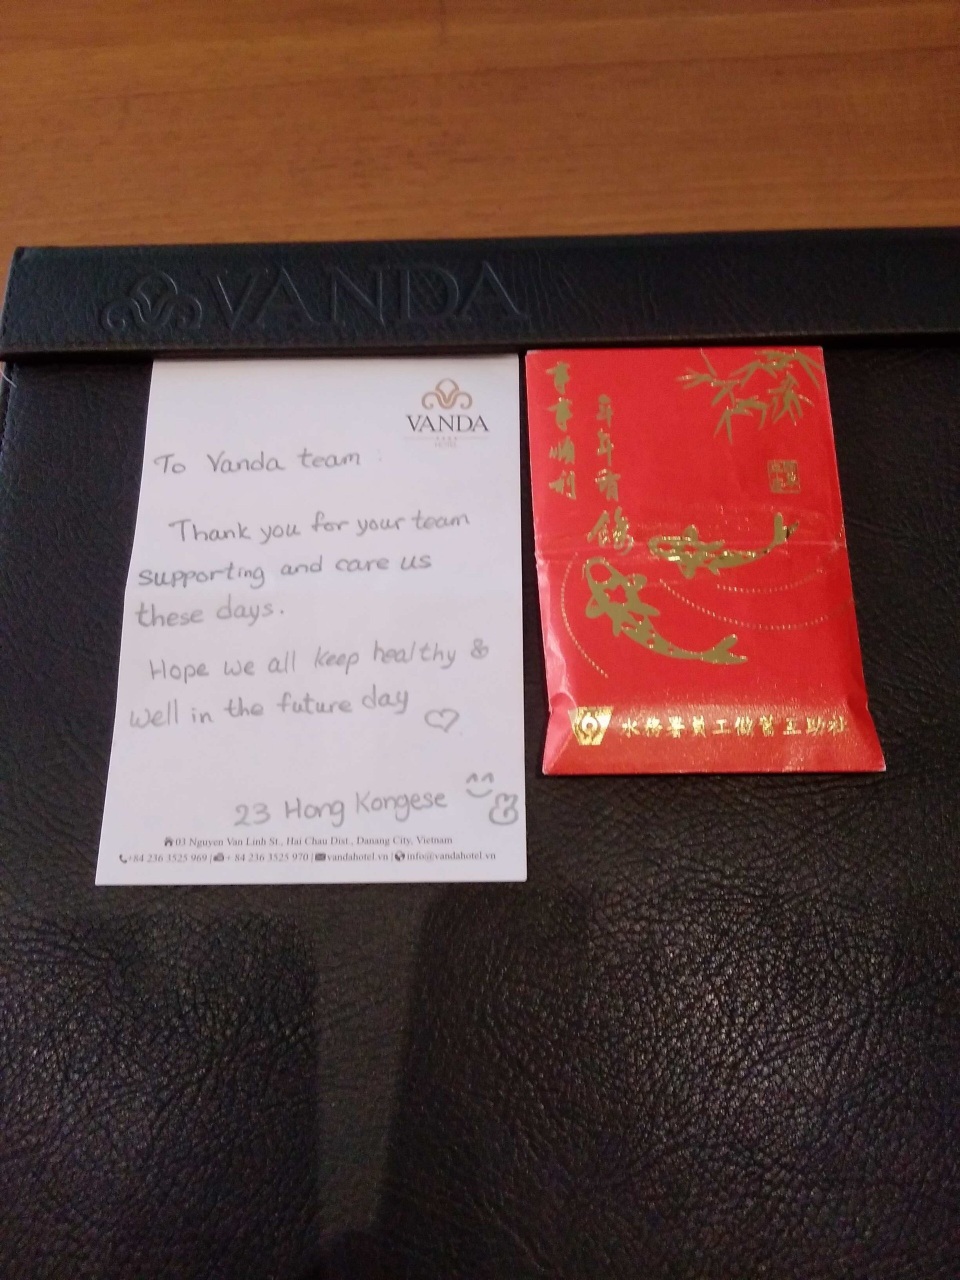 VANDA
VANDA
HOTEL
To Vanda team :
Thank you for your team
supporting and care us
these days.
Hope we all keep healthy &
well in the future day
23 Hong Kongese
03 Nguyen Van Linh St., Hai Chau Dist., Danang City, Vietnam
+84 236 3525 969 | + 84 236 3525 970 | vandahotel.vn | info@vandahotel.vn
事事順利
年年有餘
水務署員工儲蓄互助社